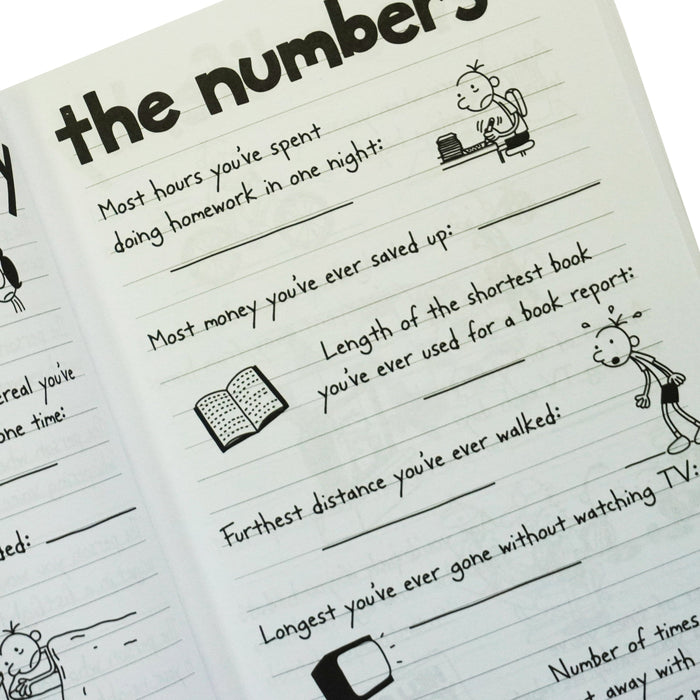 the numbers
Most hours you've spent
doing homework in one night:
Most money you've ever saved up:
Length of the shortest book
you've ever used for a book report:
Furthest distance you've ever walked:
Longest you've ever gone without watching TV:
Number of times
away with
you've
one time: